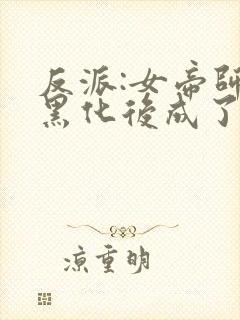 反派:女帝師
黑化後成了
涼重明